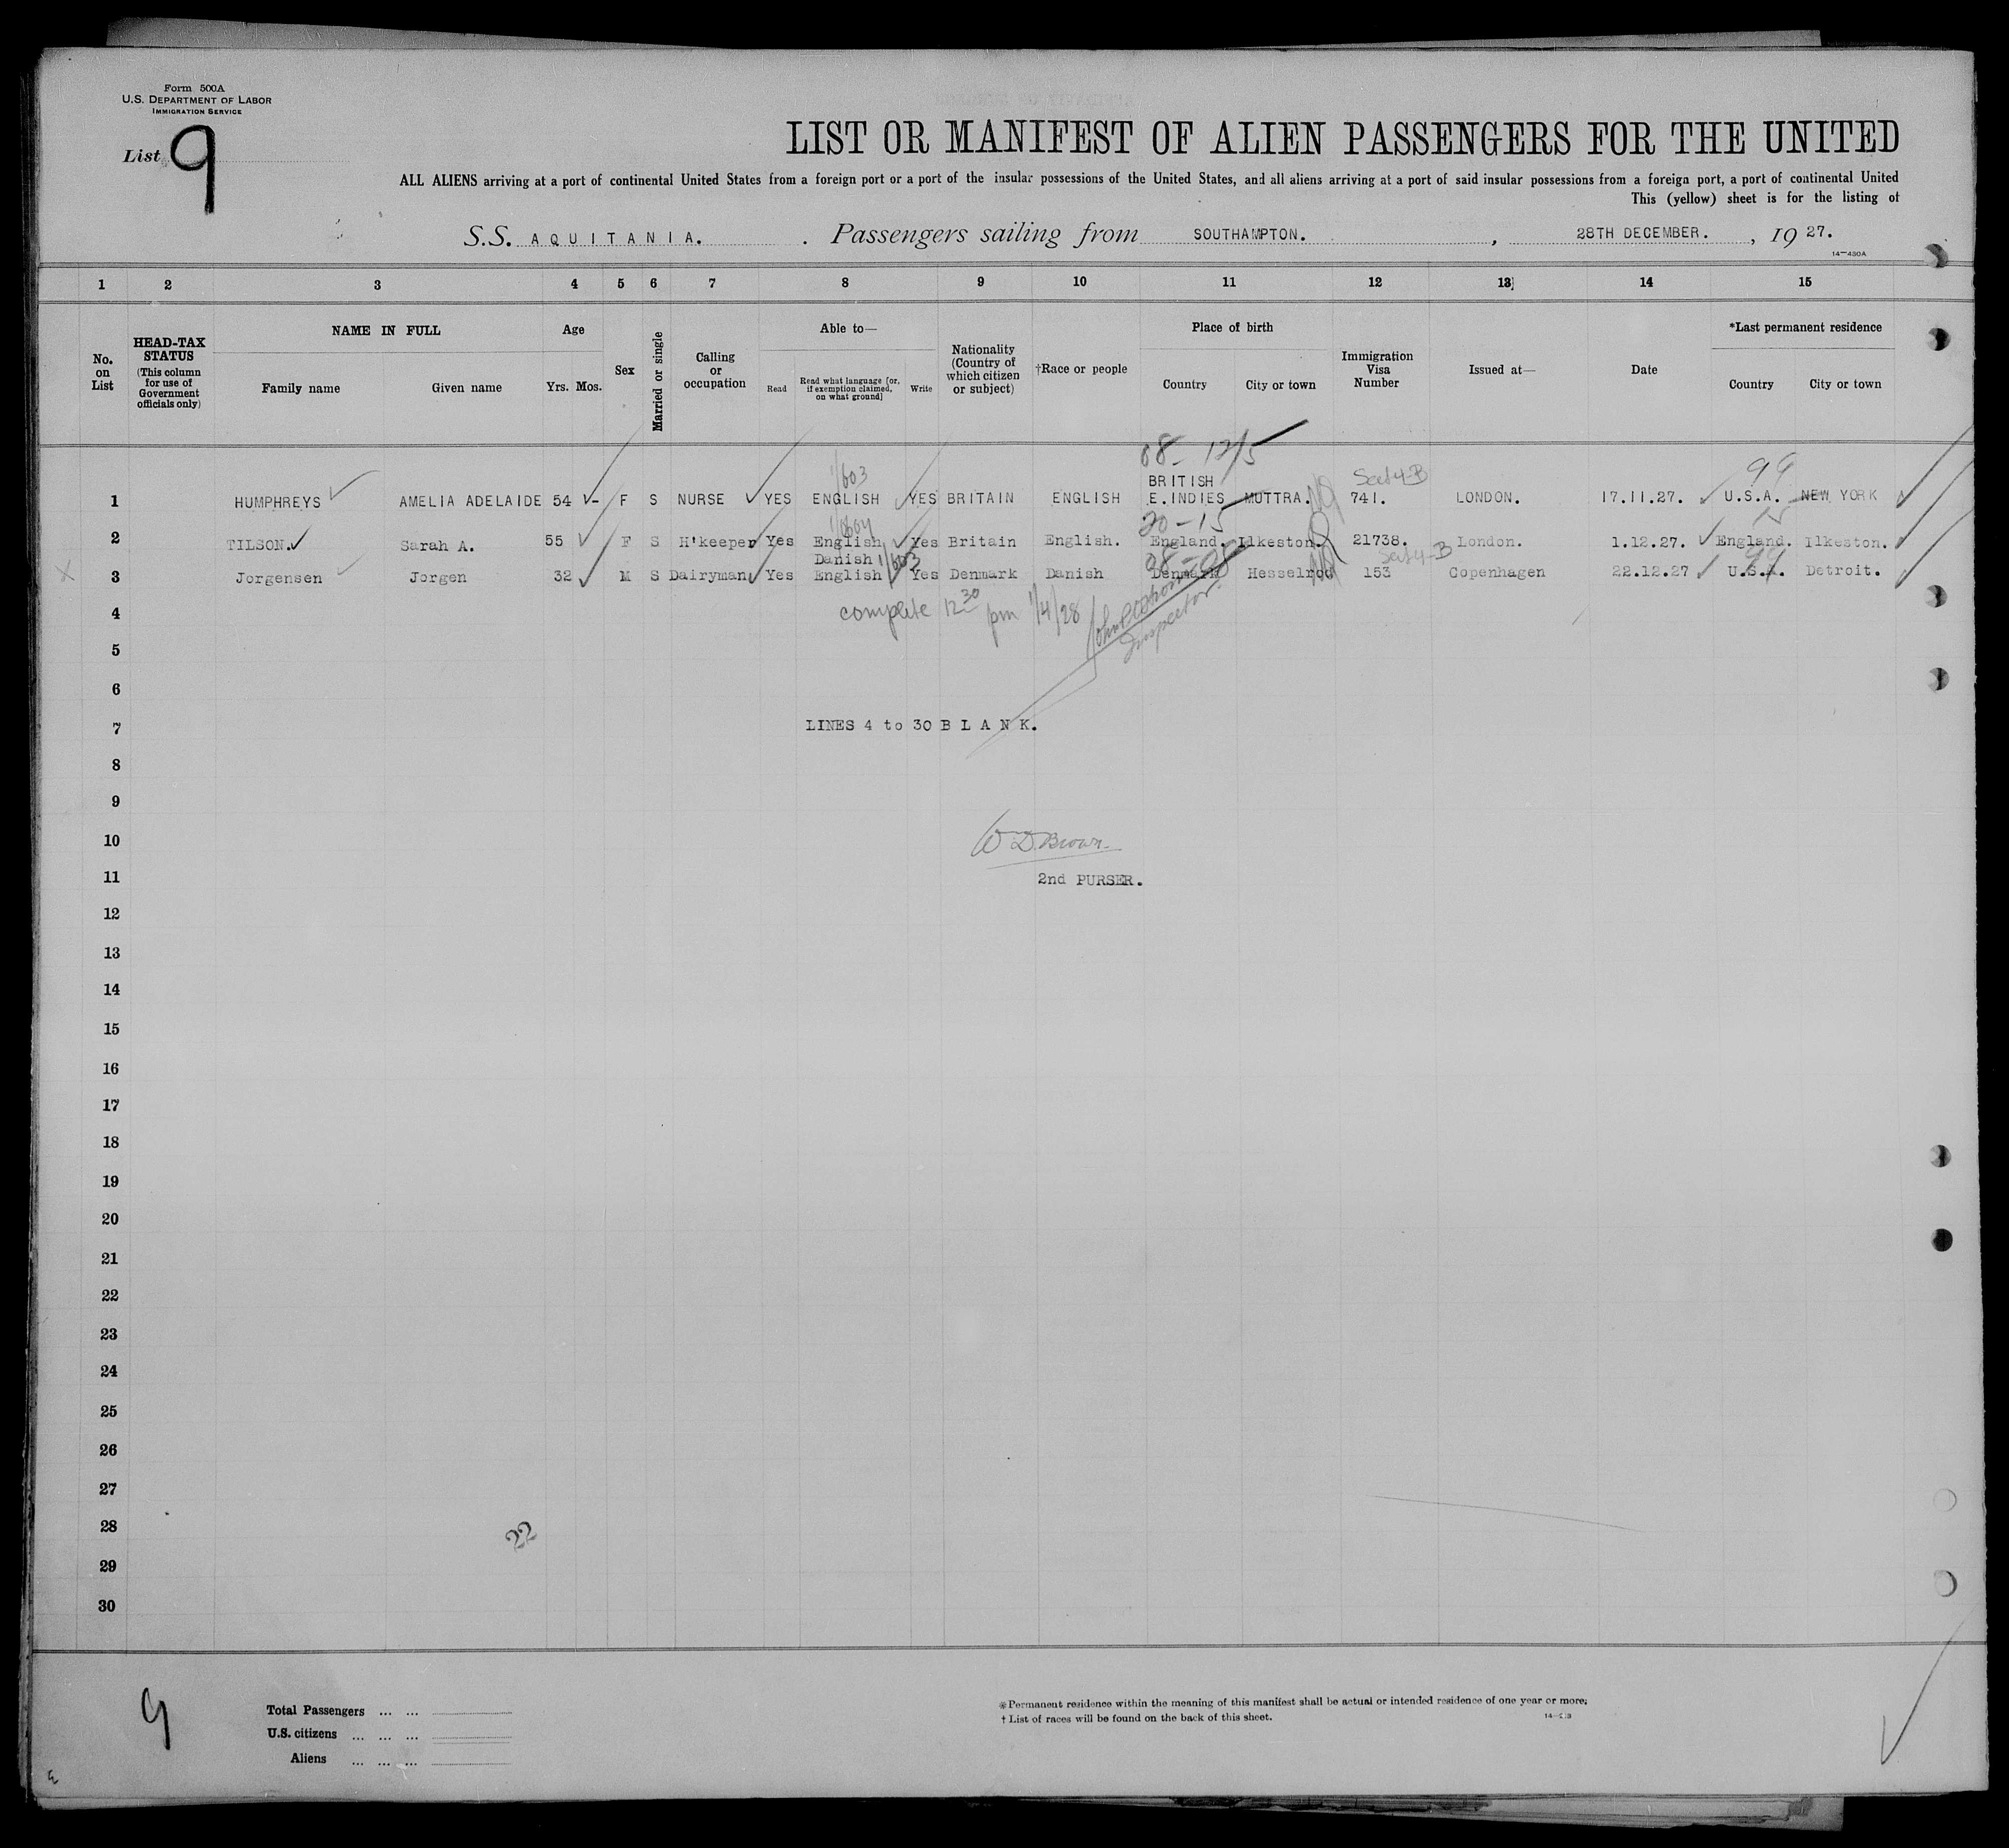 Form 500A
U.S. DEPARTMENT OF LABOR
IMMIGRATION SERVICE
List 9
LIST OR MANIFEST OF ALIEN PASSENGERS FOR THE UNITED
ALL ALIENS arriving at a port of continental United States from a foreign port or a port of the insular possessions of the United States, and all aliens arriving at a port of said insular possessions from a foreign port, a port of continental United
This (yellow) sheet is for the listing of
S.S. AQUITANIA. Passengers sailing from SOUTHAMPTON. , 28TH DECEMBER. , 19 27.
14-430A
1 2 3 4 5 6 7 8 9 10 11 12 13 14 15
No. on List
HEAD-TAX STATUS (This column for use of Government officials only)
NAME IN FULL
Family name Given name
Age
Yrs. Mos.
Sex
Married or single
Calling or occupation
Able to—
Read Read what language [or, if exemption claimed, on what ground] Write
Nationality (Country of which citizen or subject)
†Race or people
Place of birth
Country City or town
Immigration Visa Number
Issued at—
Date
*Last permanent residence
Country City or town
08-12/5
1/603 BRITISH Sect 4-B 99
1 HUMPHREYS AMELIA ADELAIDE 54 - F S NURSE YES ENGLISH YES BRITAIN ENGLISH E.INDIES MUTTRA. 741. LONDON. 17.11.27. U.S.A. NEW YORK
20-15 15
2 TILSON. Sarah A. 55 F S H'keeper Yes English Yes Britain English. England. Ilkeston. 21738. London. 1.12.27. England. Ilkeston.
Danish 1/603 Sect 4-B 99
3 Jorgensen Jorgen 32 M S Dairyman Yes English Yes Denmark Danish Denmark Hesselrod 153 Copenhagen 22.12.27 U.S.A. Detroit.
4 complete 12 30 pm 1/4/28
Inspector.
5
6
7 LINES 4 to 30 BLANK.
8
9
10 W D Brown
11 2nd PURSER.
12
13
14
15
16
17
18
19
20
21
22
23
24
25
26
27
28 22
29
30
9
Total Passengers ... ...
U.S. citizens ... ... ...
Aliens ... ... ...
*Permanent residence within the meaning of this manifest shall be actual or intended residence of one year or more.
† List of races will be found on the back of this sheet.